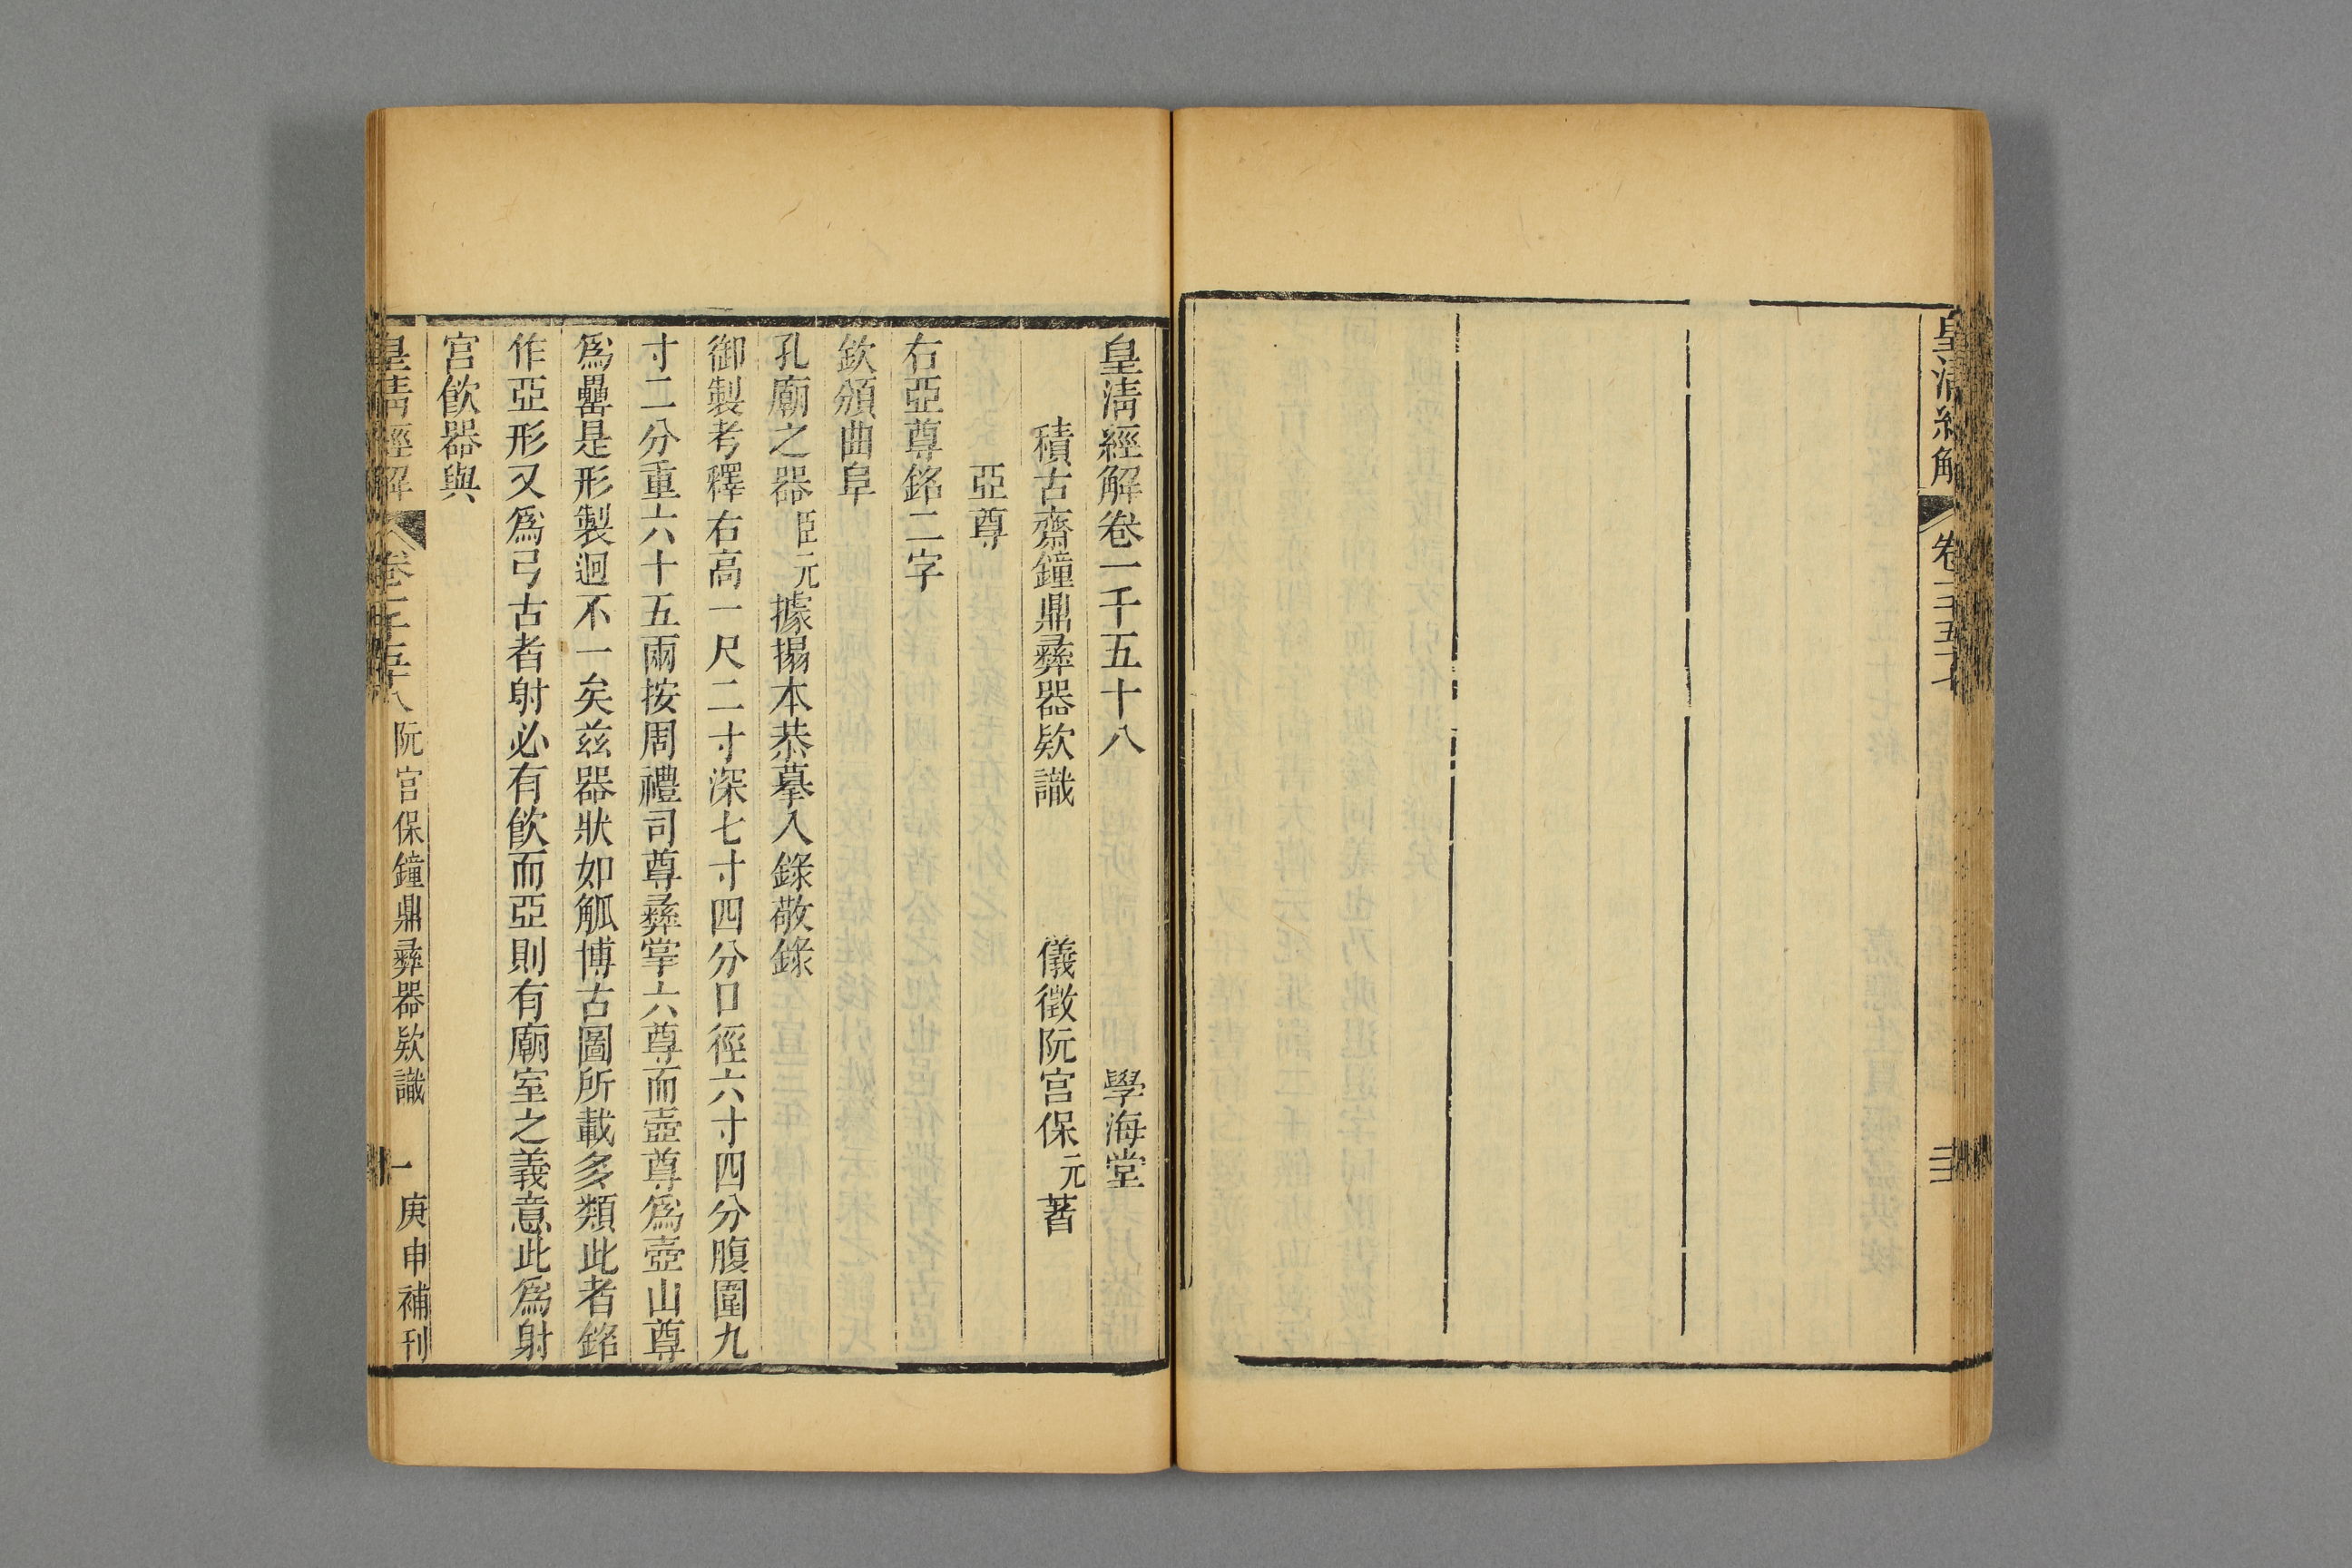 皇清經解
皇清經解卷一千五十八
學海堂
積古齋鐘鼎彝器欵識
儀徵阮宮保元著
亞尊
右亞尊銘二字
欽頒曲阜
孔廟之器臣元據搨本恭摹入錄敬錄
御製考釋右高一尺二寸深七寸四分口徑六寸四分腹圍九
寸二分重六十五兩按周禮司尊彝掌六尊而壺尊爲壺山尊
爲罍是形製迥不一矣兹器狀如觚博古圖所載多類此者銘
作亞形又爲弓古者射必有飲而亞則有廟室之義意此爲射
宮飲器與
皇清經解
卷一千五十八
阮宮保鐘鼎彝器欵識
一
庚申補刊